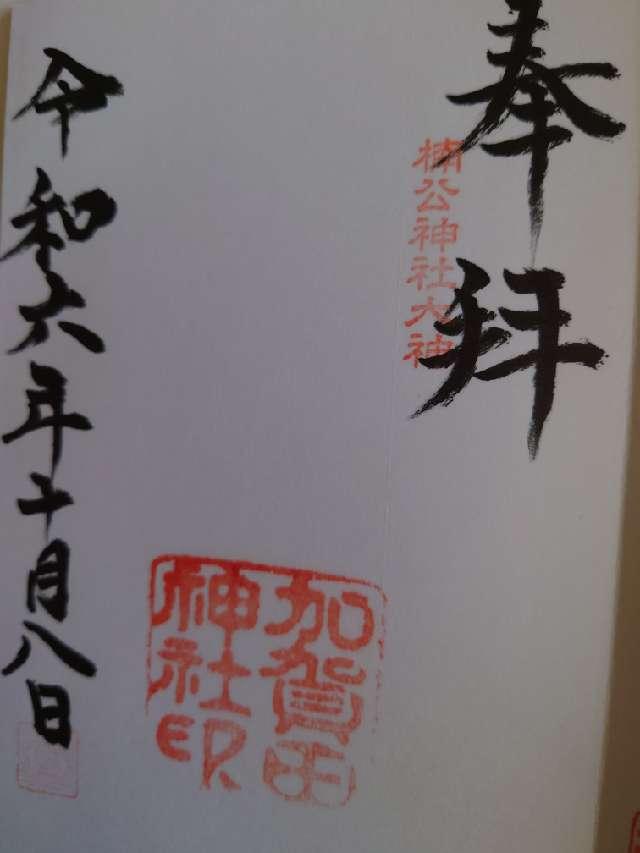 奉拝
楠公神社大神
加賀田
神社印
令和六年十月八日